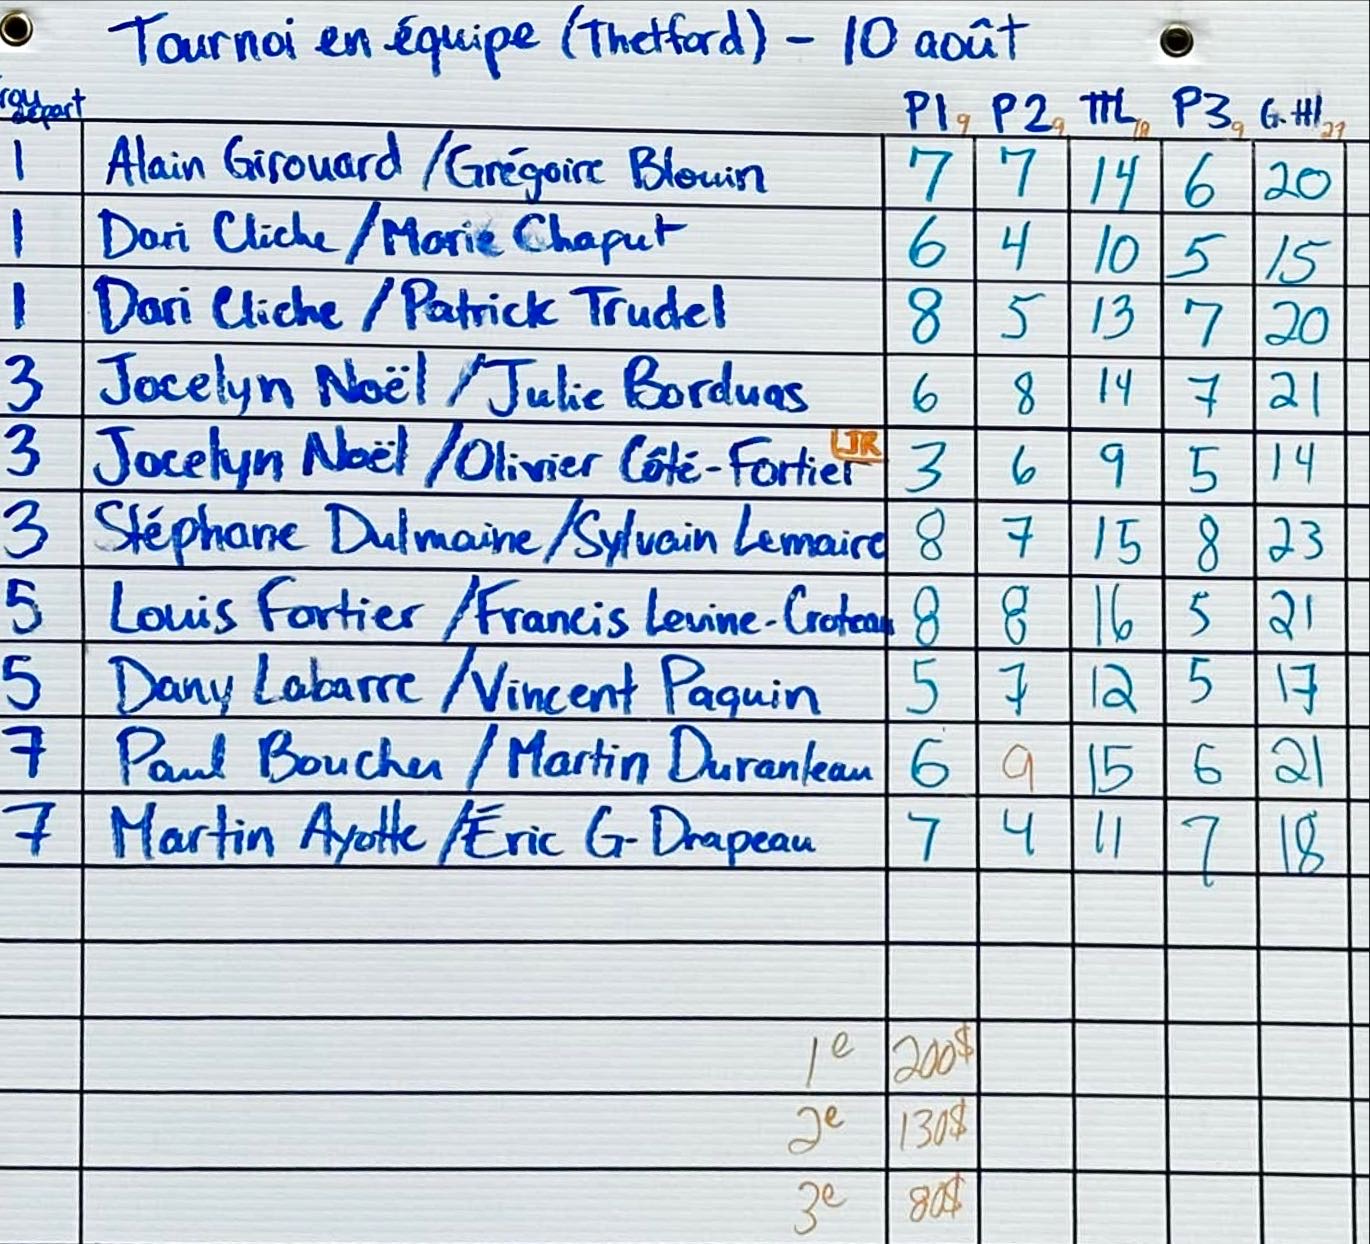 Tournoi en équipe (Thetford) - 10 août
Trou départ P1 9 P2 9 TTL 18 P3 9 G.ttl 27
1 Alain Girouard / Grégoire Blouin 7 7 14 6 20
1 Dari Cliche / Marie Chaput 6 4 10 5 15
1 Dari Cliche / Patrick Trudel 8 5 13 7 20
3 Jocelyn Noël / Julie Borduas 6 8 14 7 21
3 Jocelyn Noël / Olivier Côté-Fortier JR 3 6 9 5 14
3 Stéphane Dulmaine / Sylvain Lemaire 8 7 15 8 23
5 Louis Fortier / Francis Levine-Croteau 8 8 16 5 21
5 Dany Labarre / Vincent Paquin 5 7 12 5 17
7 Paul Boucher / Martin Duranleau 6 9 15 6 21
7 Martin Ayotte / Éric G-Drapeau 7 4 11 7 18
1e 200$
2e 130$
3e 80$